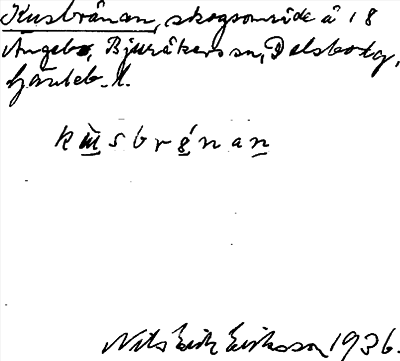 Kusbränan, skogsområde å 18
Ängebo, Bjuråkers sn, Delsbo tg,
Gävleb. l.
k ù̱ s b r é̱ n a ṉ
Nils Erik Eriksson 1936.